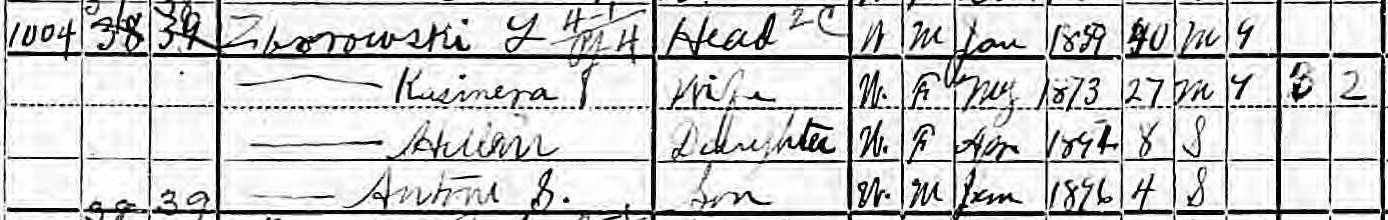 1004 38 39 Zborowski L 4/4 Head 2C W M Jan 1859 40 M 9
— Kasimera Wife W. F My 1873 27 M 9 3 2
— Daughter W. F Apr 189 8 S
— Antoni S. Son W. M Jan 1896 4 S
39